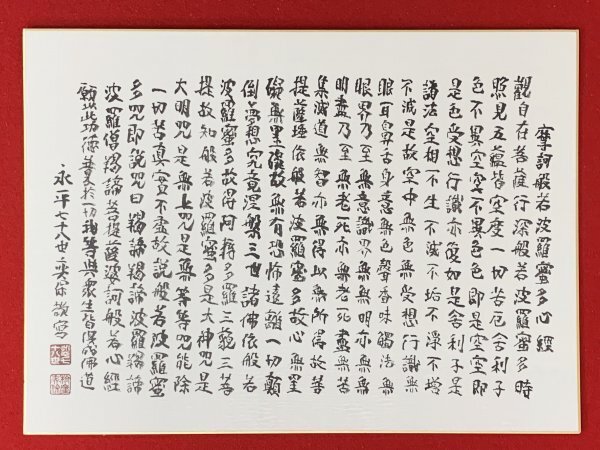 摩訶般若波羅蜜多心經
觀自在菩薩行深般若波羅蜜多時
照見五蘊皆空度一切苦厄舍利子
色不異空空不異色色即是空空即
是色受想行識亦復如是舍利子是
諸法空相不生不滅不垢不淨不增
不減是故空中無色無受想行識無
眼耳鼻舌身意無色聲香味觸法無
眼界乃至無意識界無無明亦無無
明盡乃至無老死亦無老死盡無苦
集滅道無智亦無得以無所得故菩
提薩埵依般若波羅蜜多故心無罣
礙無罣礙故無有恐怖遠離一切顛
倒夢想究竟涅槃三世諸佛依般若
波羅蜜多故得阿耨多羅三藐三菩
提故知般若波羅蜜多是大神咒是
大明咒是無上咒是無等等咒能除
一切苦真實不虛故說般若波羅蜜
多咒即說咒曰羯諦羯諦波羅羯諦
波羅僧羯諦菩提薩婆訶般若心經
願以此功德普及於一切我等與衆生皆共成佛道
永平七十八世奕保敬寫